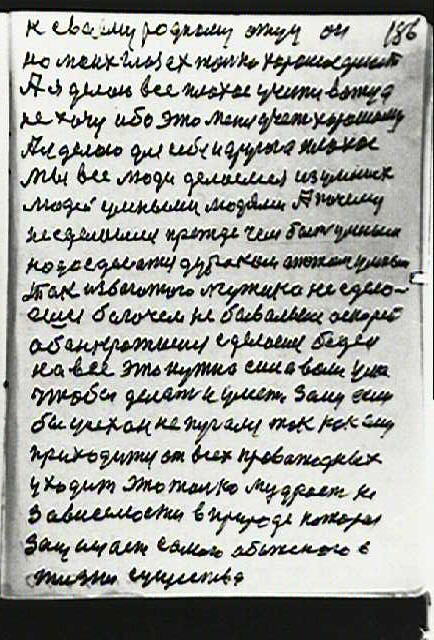 к своему родному отцу он 186
на моих глазах только хорошое делает
А я делаю все плохое учити вожуд
не хочу ибо это меня учат хорошому
А я делаю для себя и друга плохое
Мы все люди делаемся из умных
людей умными людями А почему
не сделаныи прежде чем быть умным
надо сделати дураком а потом умным
Так из богатого мужика не сдела-
еш богачем не бывалыи а скорей
обанкротыш и сделаеш беден
на все это нужно сила воли ума
чтобы делат и умет Зачем
бы успехам не пугали так как ему
приходити от всех
уходит это только мудрост и
Зависемости в природе которая
Защищает самого в
жизни существа